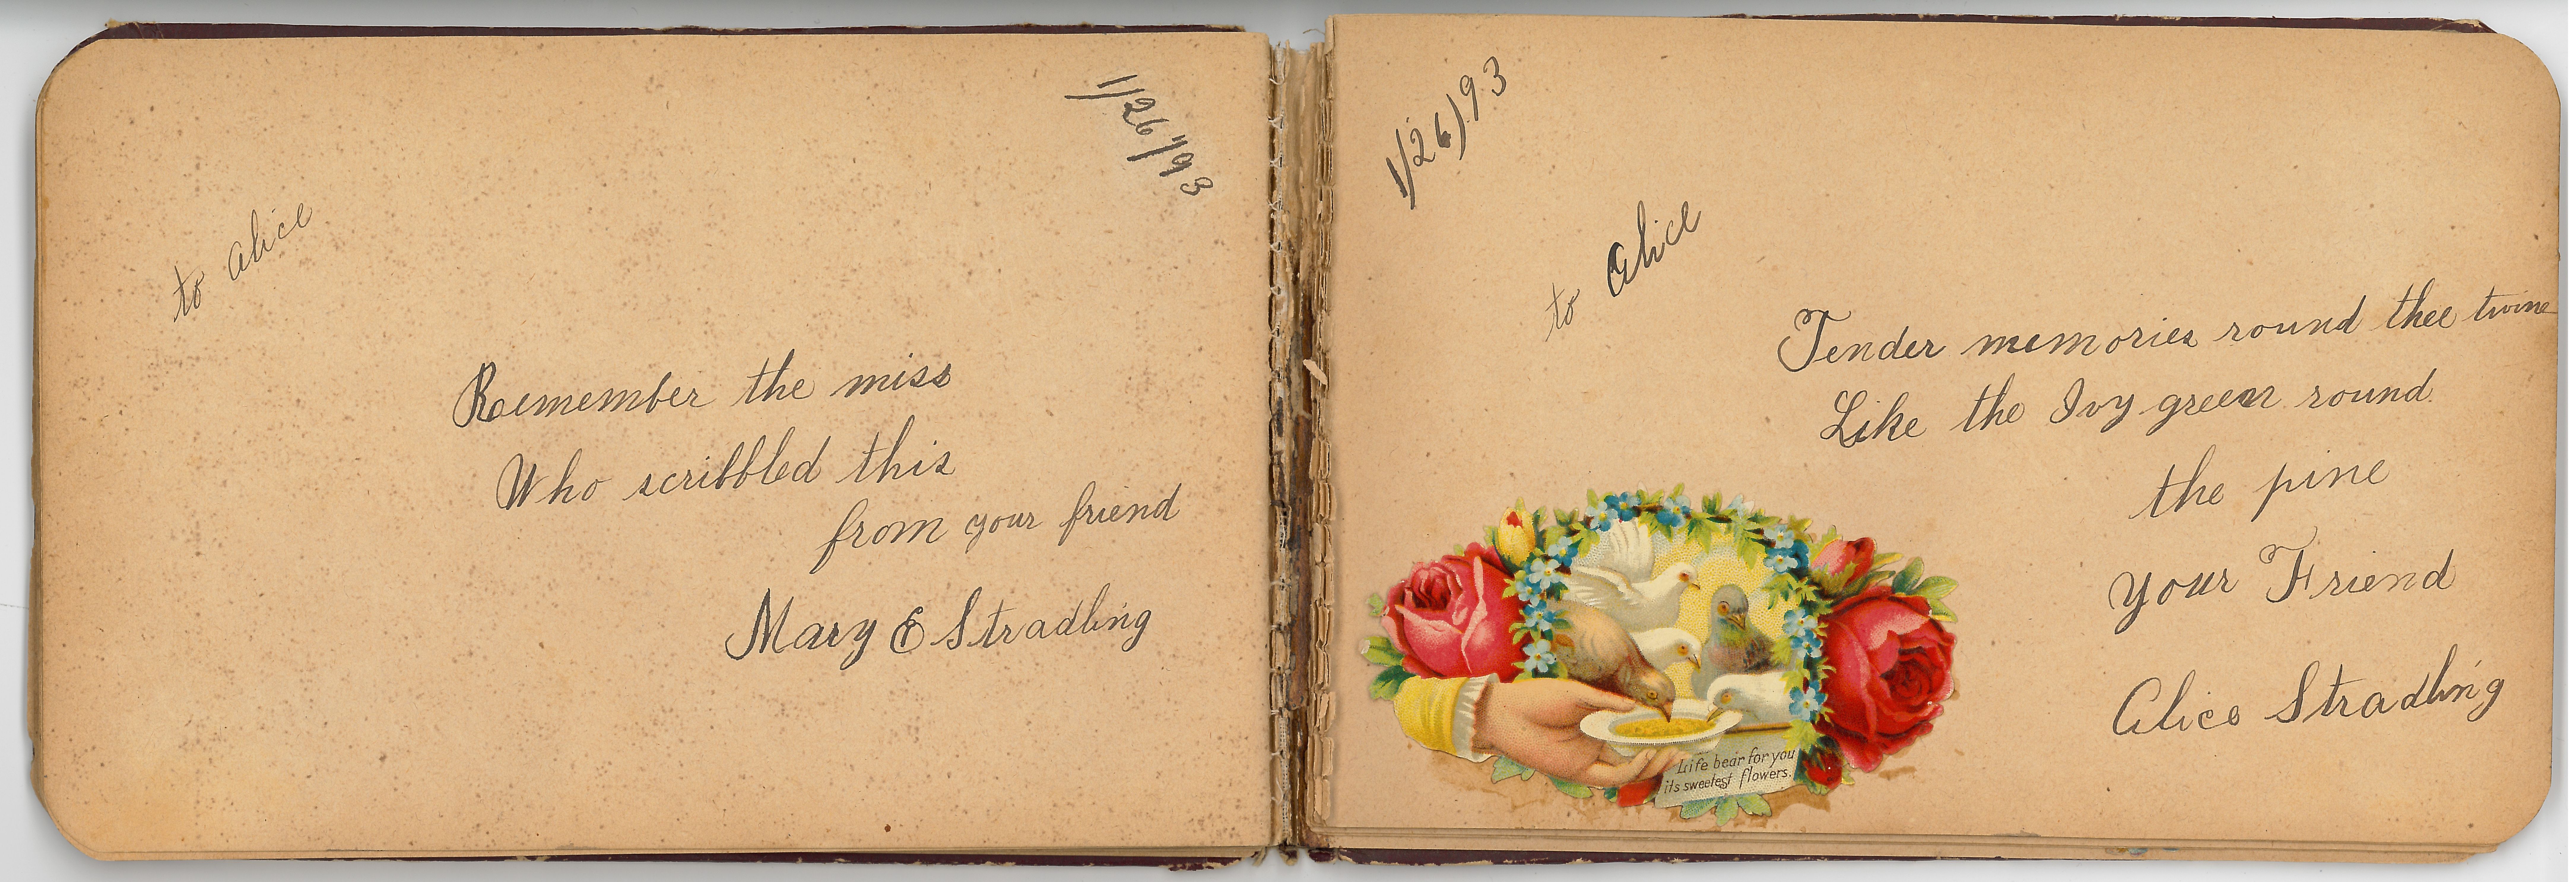 1/26/93
to Alice
Remember the miss
Who scribbled this
from your friend
Mary E Stradling
1/26/93
to Alice
Tender memories round thee twine
Like the Ivy green round
the pine
Your Friend
Alice Stradling
Life bear for you
its sweetest flowers.